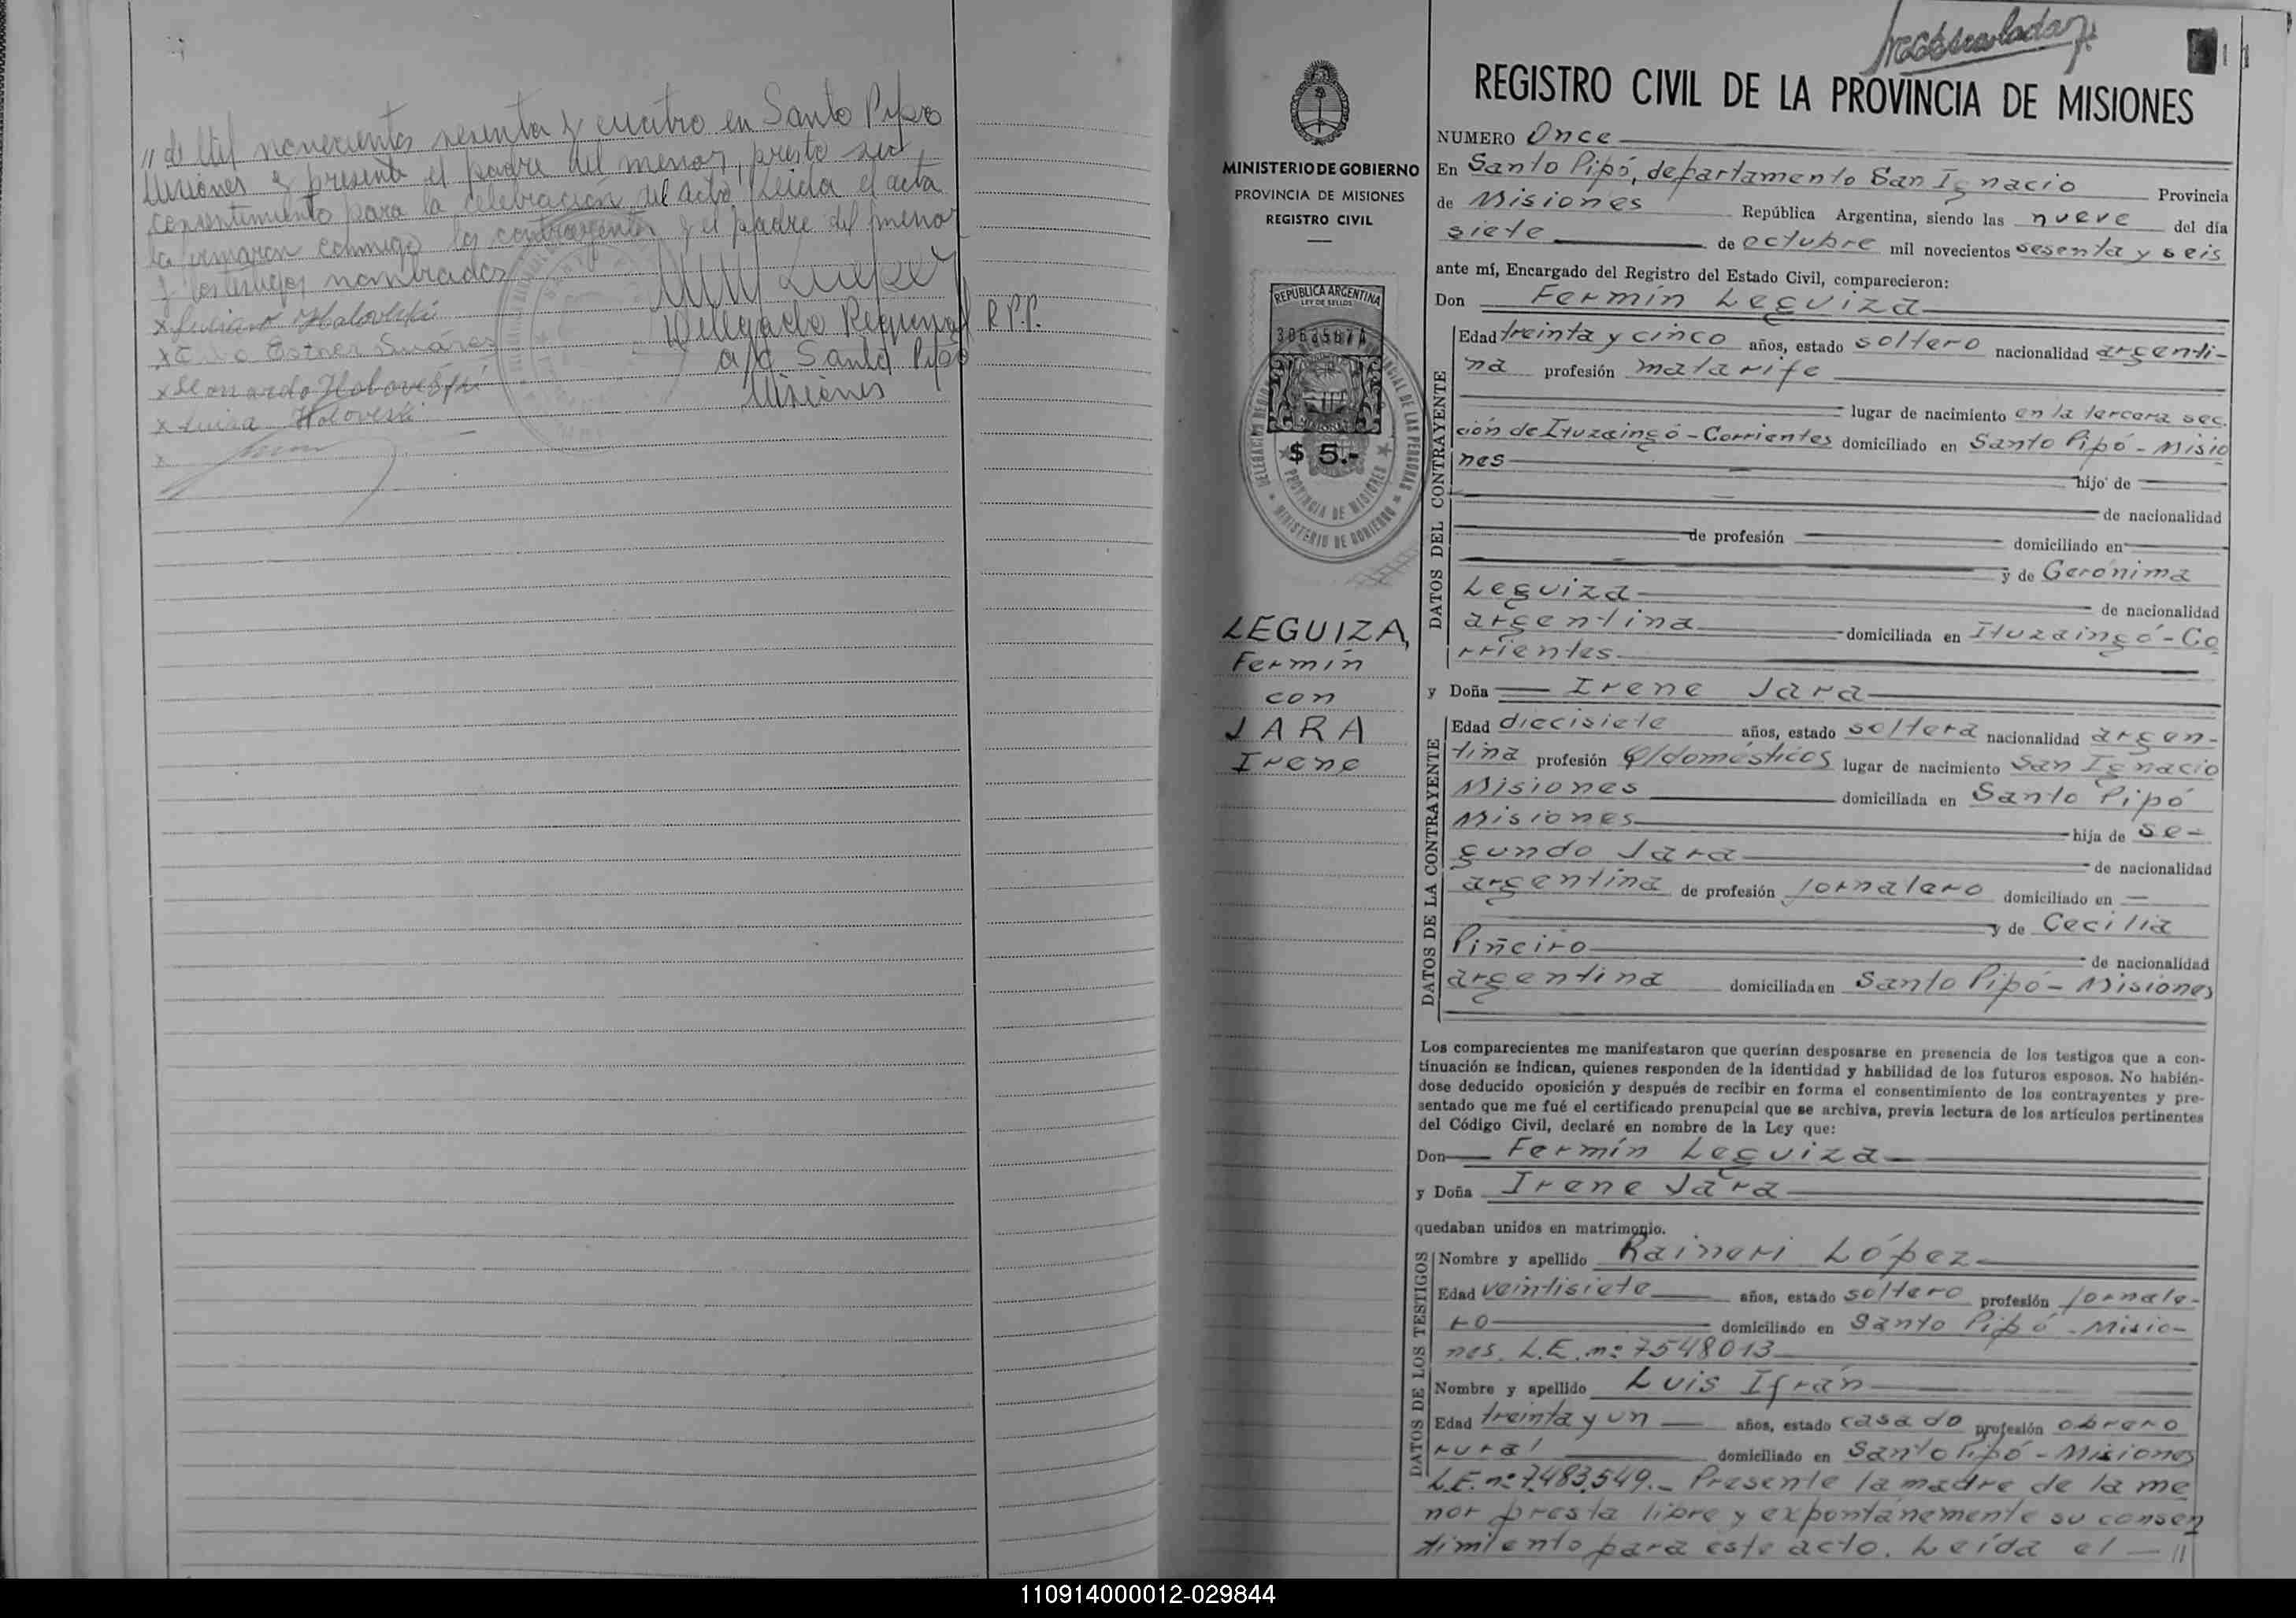 " de Mil novecientos sesenta y cuatro en Santo Pipó
Misiones y presente el padre del menor, presto su
consentimiento para la celebración del acto. Leida el acta
la firmaron conmigo los contrayentes y el padre del menor
y los testigos nombrados
Delegado Regional R.P.P.
a/c Santo Pipó
Misiones
x Esther Suárez
x Leonardo Holoveski
x Luisa Holoveski
x
REGISTRO CIVIL DE LA PROVINCIA DE MISIONES
MINISTERIO DE GOBIERNO
PROVINCIA DE MISIONES
REGISTRO CIVIL
REPUBLICA ARGENTINA
LEY DE SELLOS
$ 5.-
PROVINCIA DE MISIONES
MINISTERIO DE GOBIERNO
LEGUIZA,
Fermín
con
JARA
Irene
NUMERO Once
En Santo Pipó, departamento San Ignacio Provincia
de Misiones República Argentina, siendo las nueve del día
siete de octubre mil novecientos sesenta y seis
ante mí, Encargado del Registro del Estado Civil, comparecieron:
Don Fermín Leguiza
DATOS DEL CONTRAYENTE
Edad treinta y cinco años, estado soltero nacionalidad argenti-
na profesión matarife
lugar de nacimiento en la tercera sec
ción de Ituzaingó - Corrientes domiciliado en Santo Pipó - Misio
nes
hijo de
de nacionalidad
de profesión domiciliado en
y de Gerónima
Leguiza de nacionalidad
argentina domiciliada en Ituzaingó - Co
rrientes
y Doña Irene Jara
DATOS DE LA CONTRAYENTE
Edad diecisiete años, estado soltera nacionalidad argen-
tina profesión Q/domésticos lugar de nacimiento San Ignacio
Misiones domiciliada en Santo Pipó
Misiones hija de Se-
gundo Jara de nacionalidad
argentina de profesión jornalero domiciliado en —
y de Cecilia
Piñeiro de nacionalidad
argentina domiciliada en Santo Pipó - Misiones
Los comparecientes me manifestaron que querían desposarse en presencia de los testigos que a con-
tinuación se indican, quienes responden de la identidad y habilidad de los futuros esposos. No habién-
dose deducido oposición y después de recibir en forma el consentimiento de los contrayentes y pre-
sentado que me fué el certificado prenupcial que se archiva, previa lectura de los artículos pertinentes
del Código Civil, declaré en nombre de la Ley que:
Don Fermín Leguiza
y Doña Irene Jara
quedaban unidos en matrimonio.
DATOS DE LOS TESTIGOS
Nombre y apellido Raineri López
Edad veintisiete años, estado soltero profesión jornale-
ro domiciliado en Santo Pipó - Misio-
nes. L.E. nº 7548013
Nombre y apellido Luis Ifrán
Edad treinta y un años, estado casado profesión obrero
rural domiciliado en Santo Pipó - Misiones
L.E. nº 7.483.549.- Presente la madre de la me
nor presta libre y expontánemente su consen
timiento para este acto. Leída el — "
110914000012-029844